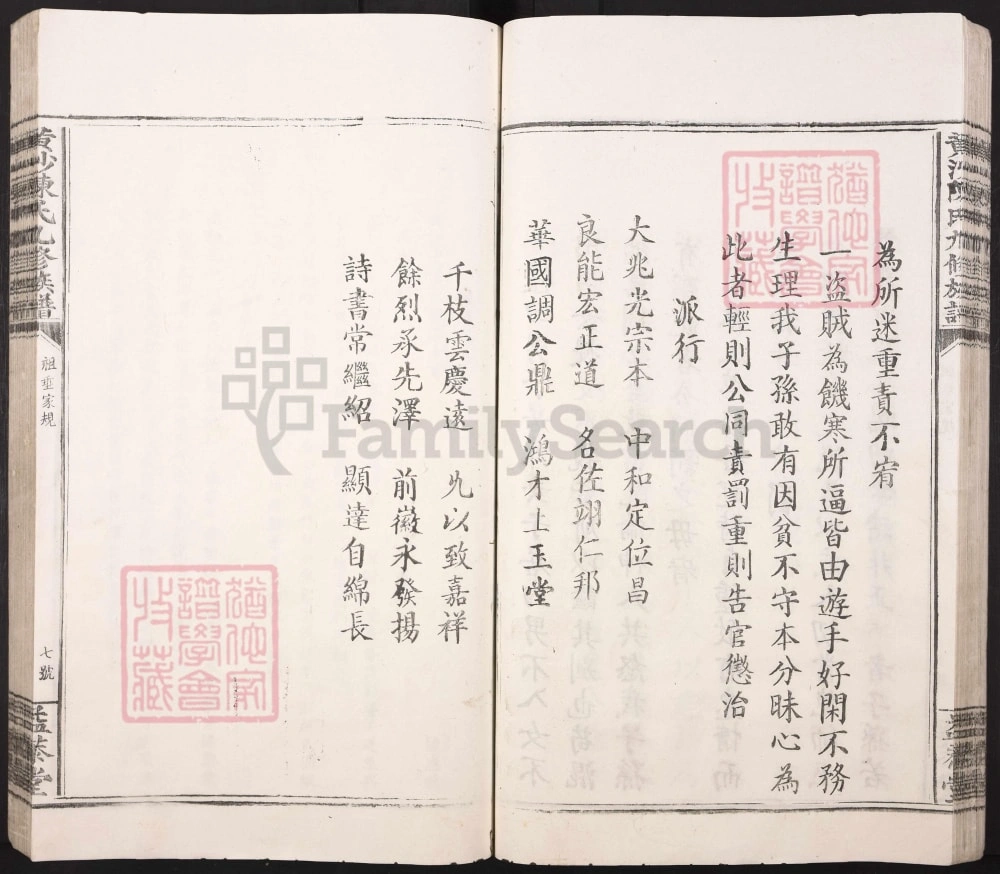 為所迷重責不宥
一盜賊為饑寒所逼皆由遊手好閑不務
生理我子孫敢有因貧不守本分昧心為
此者輕則公同責罰重則告官懲治
派行
大兆光宗本 中和定位昌
良能宏正道 名佐翊仁邦
華國調公鼎 鴻才上玉堂
千枝雲慶遠 允以致嘉祥
餘烈承先澤 前徽永發揚
詩書常繼紹 顯達自綿長
黃沙陳氏九修族譜
祖垂家規
七號
FamilySearch